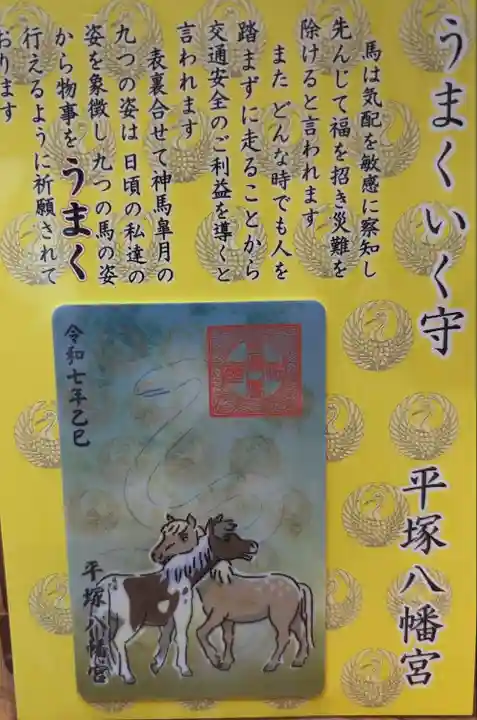 うまくいく守　平塚八幡宮
馬は気配を敏感に察知し
先んじて福を招き災難を
除けると言われます
また どんな時でも人を
踏まずに走ることから
交通安全のご利益を導くと
言われます
表裏合せて神馬皐月の
九つの姿は日頃の私達の
姿を象徴し 九つの馬の姿
から物事をうまく
行えるように祈願されて
おります
令和七年乙巳
平塚八幡宮